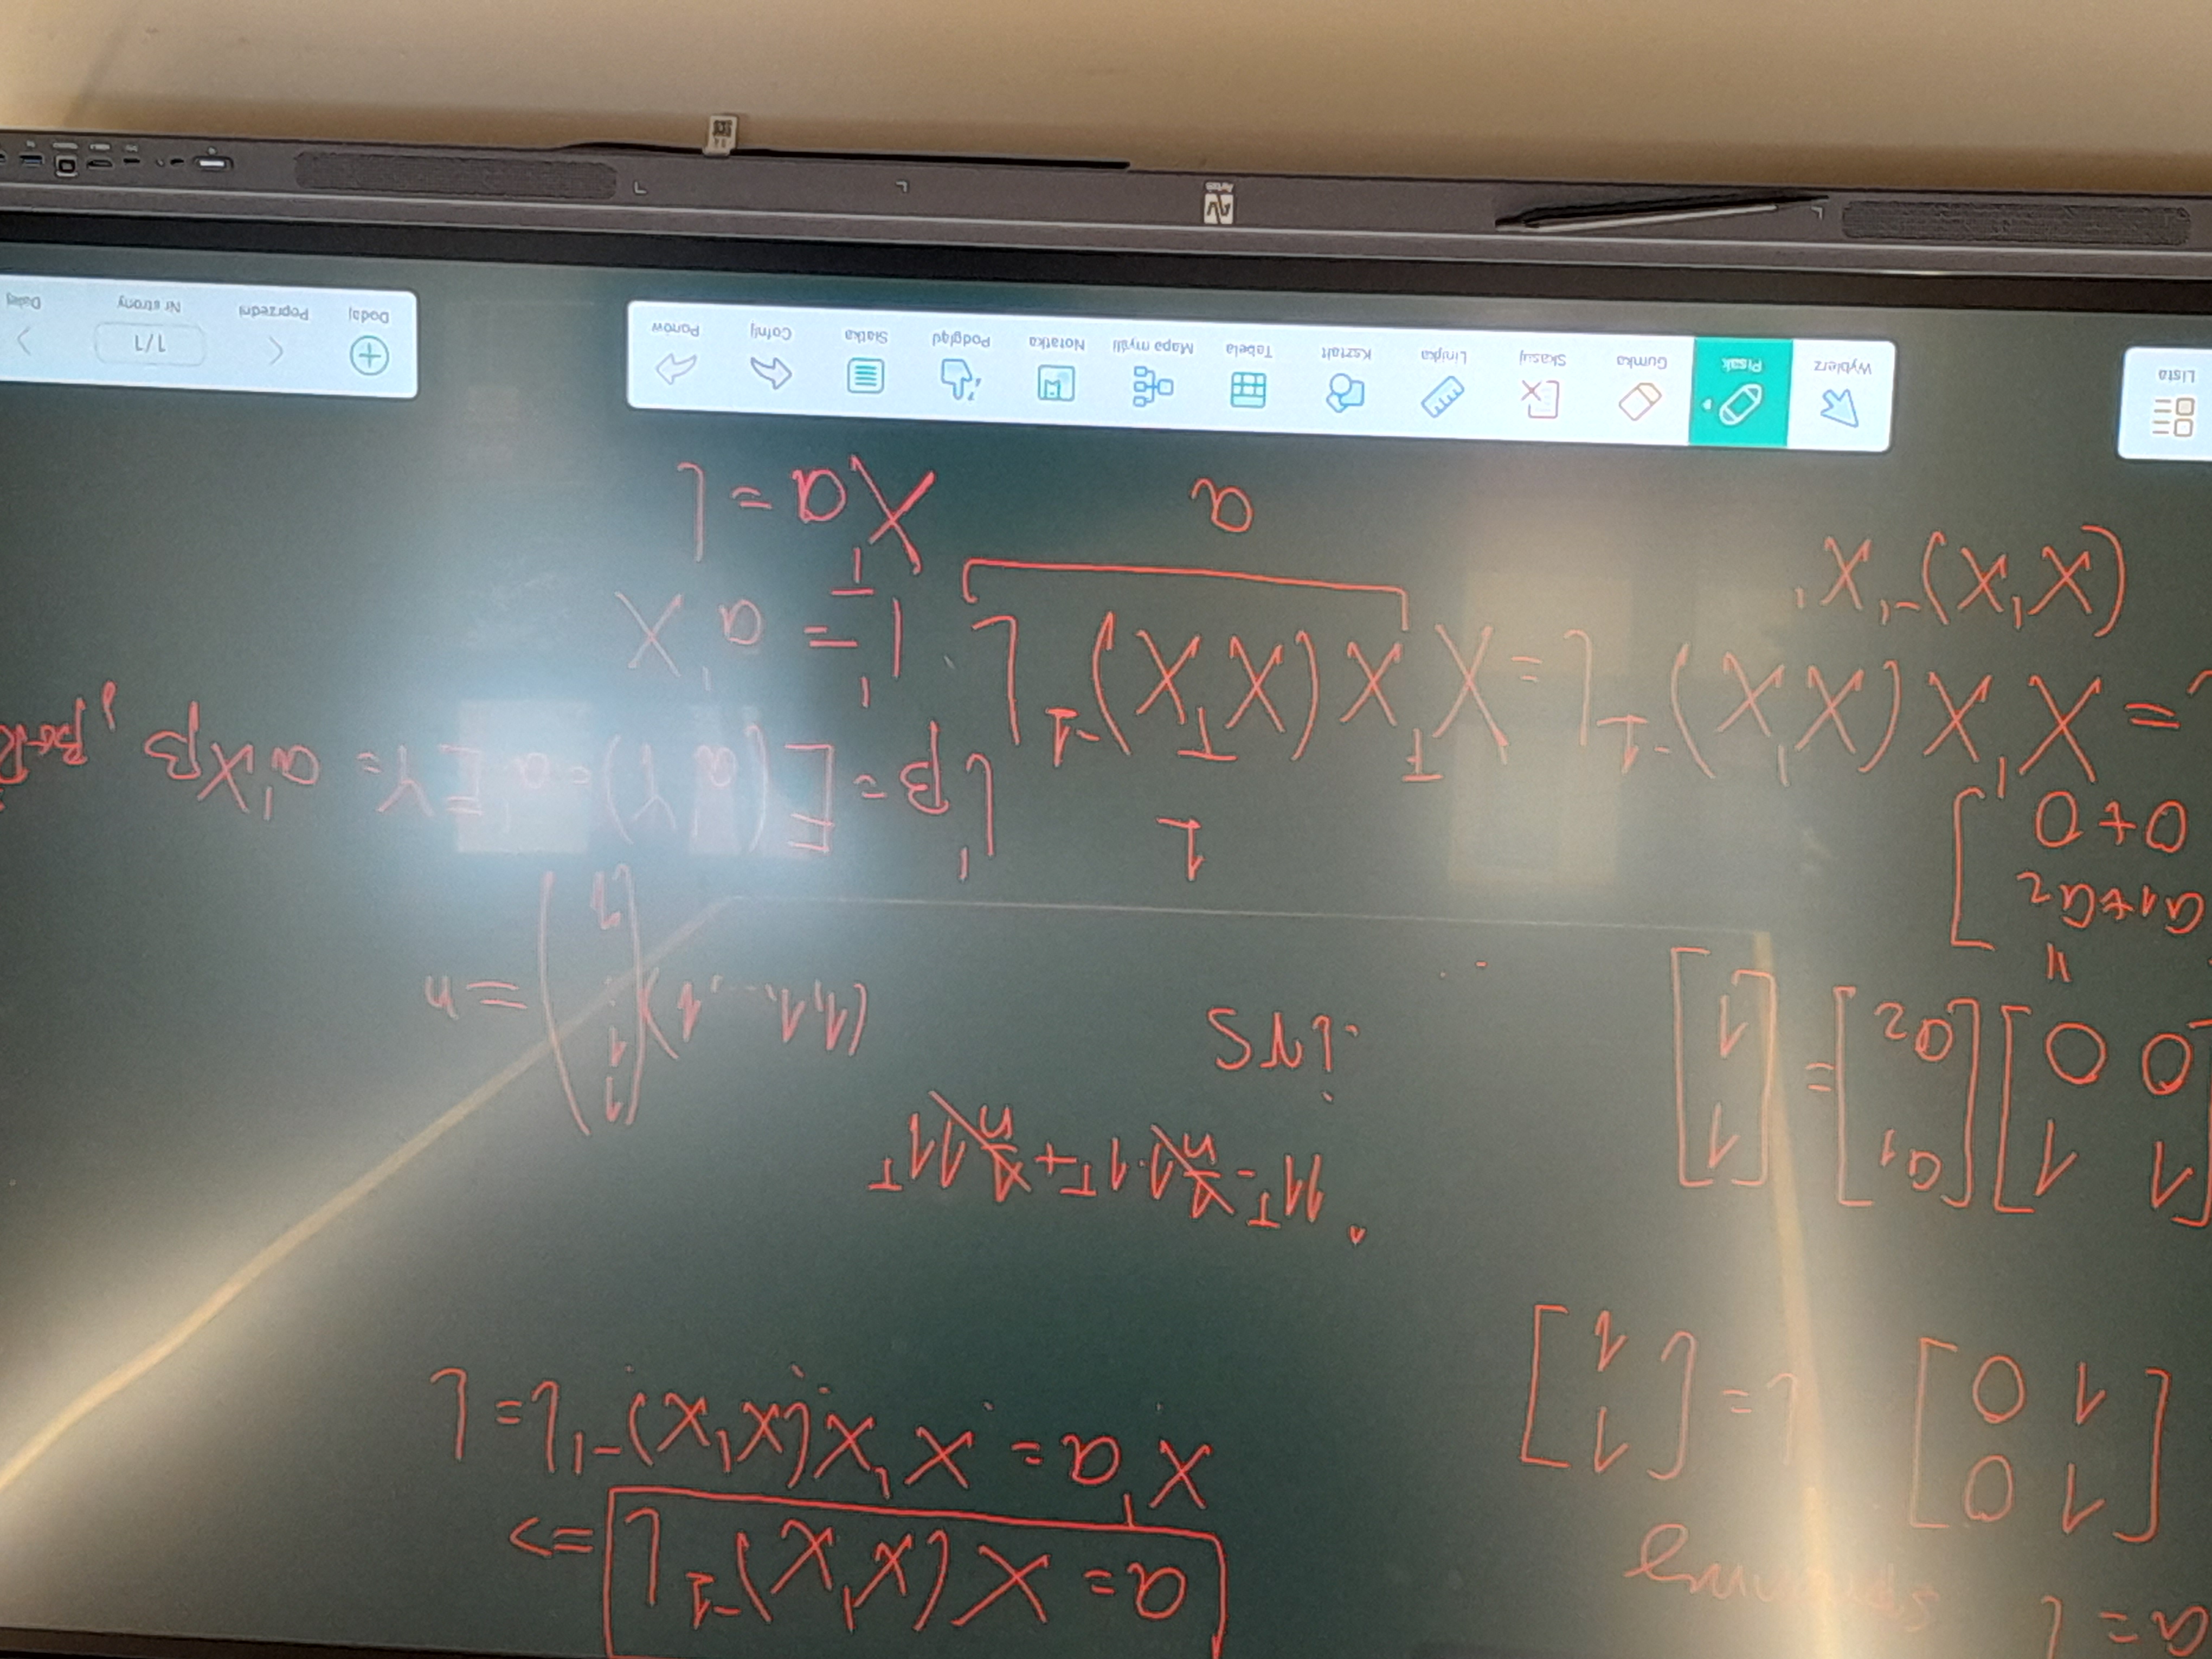 a = l sprzeczny
[1 0
1 0] l = [1
1]
a = X(X'X)⁻¹l =>
X'a = X'X(X'X)⁻¹l = l
[1 1
0 0] [a₁
a₂] = [1
1]
"
a₁+a₂
0+0 ]
11ᵀ - 1/n 1·1ᵀ + 1/n 11ᵀ
irs
(1,1...,1) (1
1
:
1) = n
1
l'β = E(a'Y) = a'EY = a'Xβ, β∈R
= X'X(X'X)⁻¹l = XᵀX(XᵀX)⁻¹l
l' = a'X
(X'X)⁻¹X'
a
Xᵀa = l
Lista
Wybierz
Pisak
Gumka
Skasuj
Linijka
Kształt
Tabela
Mapa myśli
Notatka
Podgląd
Siatka
Cofnij
Ponów
Dodaj
Poprzedni
1/1
Nr strony
Dalej